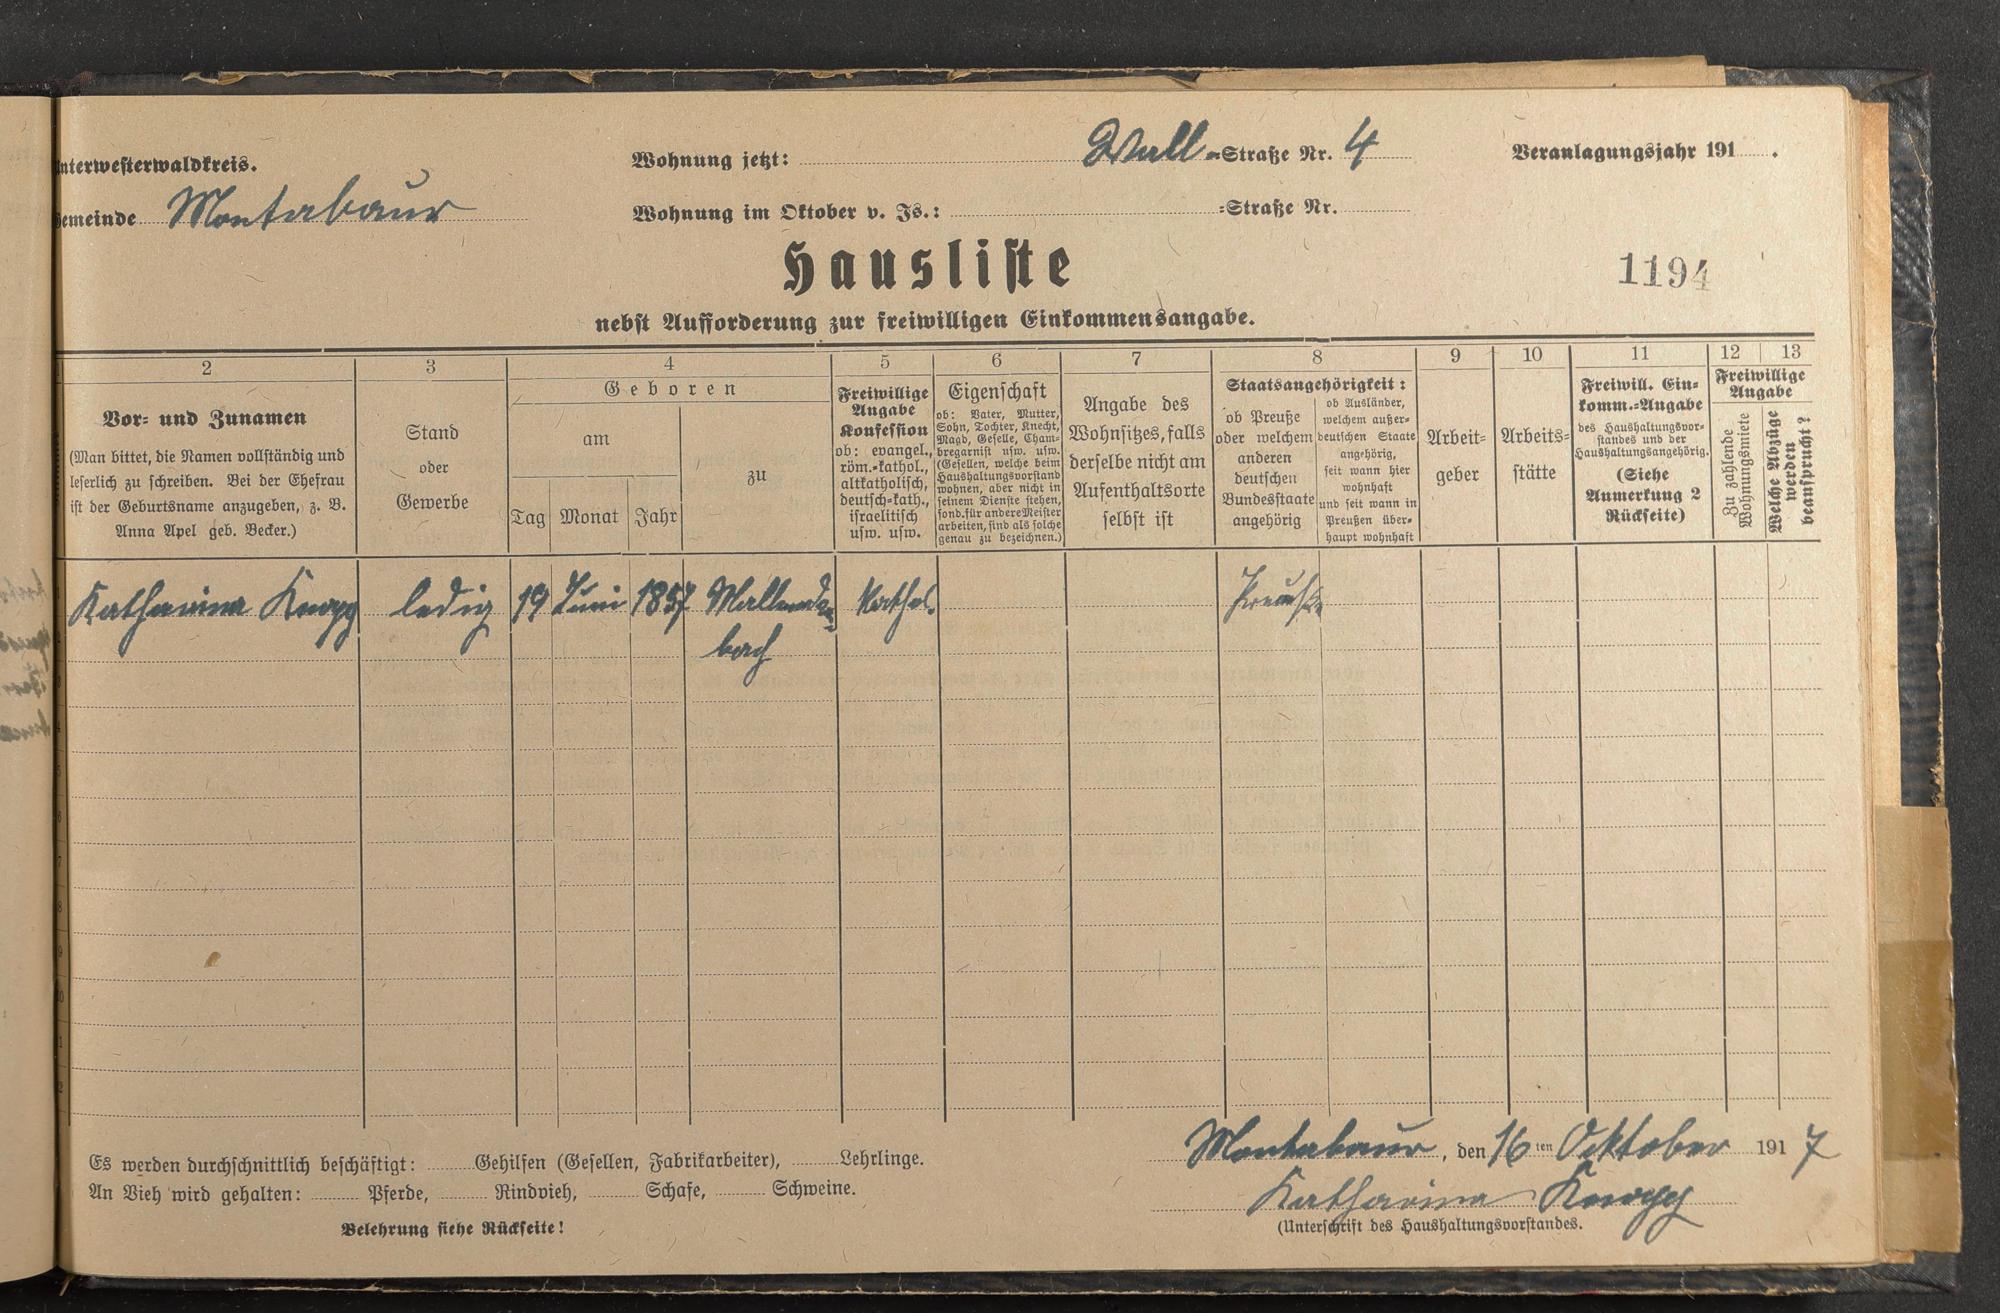 Unterwesterwaldkreis.
Wohnung jetzt: Wall-Straße Nr. 4
Veranlagungsjahr 191 .
Gemeinde Montabaur
Wohnung im Oktober v. Js.: -Straße Nr.
Hausliste
1194
nebst Aufforderung zur freiwilligen Einkommensangabe.
2
Vor- und Zunamen
(Man bittet, die Namen vollständig und
leserlich zu schreiben. Bei der Ehefrau
ist der Geburtsname anzugeben, z. B.
Anna Apel geb. Becker.)
3
Stand
oder
Gewerbe
4
Geboren
am
Tag Monat Jahr
zu
5
Freiwillige
Angabe
Konfession
ob: evangel.,
röm.-kathol.,
altkatholisch,
deutsch-kath.,
israelitisch
usw. usw.
6
Eigenschaft
ob: Vater, Mutter,
Sohn, Tochter, Knecht,
Magd, Geselle, Cham-
bregarnist usw. usw.
(Gesellen, welche beim
Haushaltungsvorstand
wohnen, aber nicht in
seinem Dienste stehen,
sond. für andere Meister
arbeiten, sind als solche
genau zu bezeichnen.)
7
Angabe des
Wohnsitzes, falls
derselbe nicht am
Aufenthaltsorte
selbst ist
8
Staatsangehörigkeit:
ob Preuße
oder welchem
anderen
deutschen
Bundesstaate
angehörig
ob Ausländer,
welchem außer-
deutschen Staate
angehörig,
seit wann hier
wohnhaft
und seit wann in
Preußen über-
haupt wohnhaft
9
Arbeit-
geber
10
Arbeits-
stätte
11
Freiwill. Ein-
komm.-Angabe
des Haushaltungsvor-
standes und der
Haushaltungsangehörig.
(Siehe
Anmerkung 2
Rückseite)
12 13
Freiwillige
Angabe
Zu zahlende
Wohnungsmiete
Welche Abzüge
werden
beansprucht?
Katharina Knopp ledig 19 Juni 1857 Kathol.
bach
3
4
5
6
7
8
9
10
Es werden durchschnittlich beschäftigt: Gehilfen (Gesellen, Fabrikarbeiter), Lehrlinge.
An Vieh wird gehalten: Pferde, Rindvieh, Schafe, Schweine.
Belehrung siehe Rückseite!
Montabaur, den 16ten Oktober 1917
Katharina Knopp
(Unterschrift des Haushaltungsvorstandes.